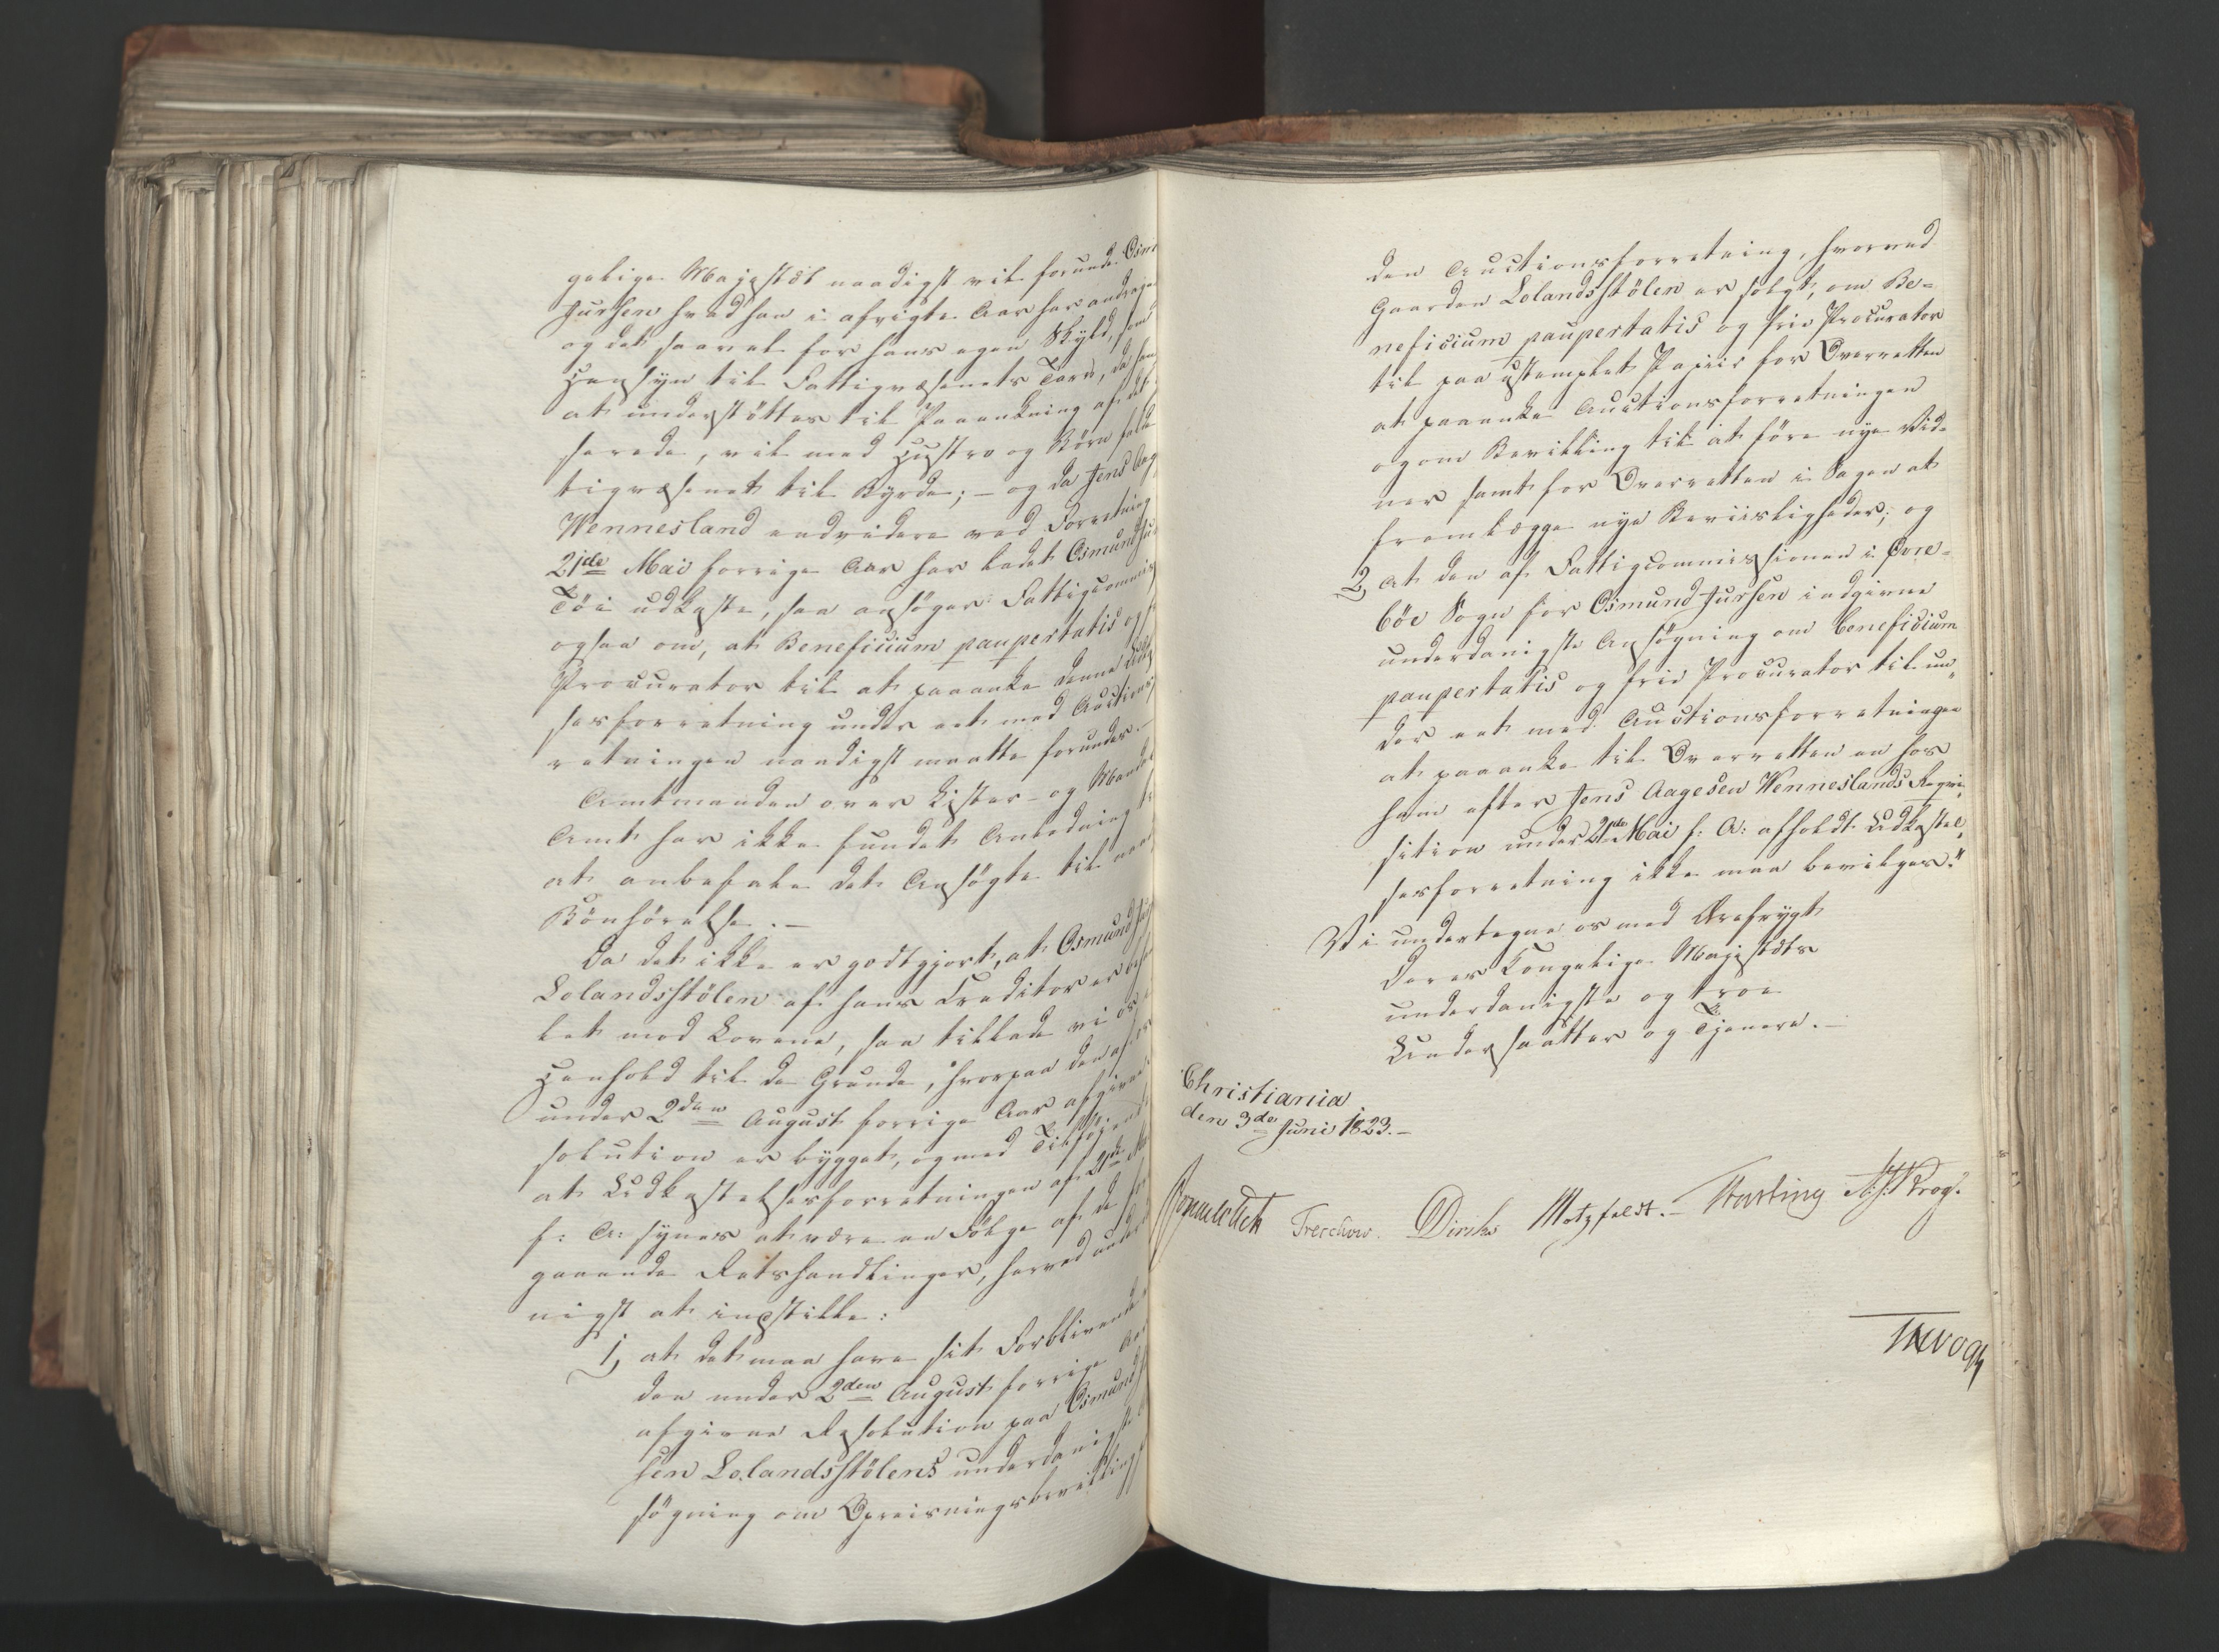 gelige Majestæt naadigst vil forunde Osm
Jursen hvad han i afvigte Aar har andrage
og det saavel for hans egen Skyld, som
Hensyn til Fattigvæsenets Tarv, da han
at understøttes til Paaankning af det
serede, vil med Hustro og Børn falde
tigvæsenet til Byrde; – og da Jens Aag
Wennesland endvidere ved Forretning
21de Mai forrige Aar har ladet Osmund Ju
Tøi udkaste, saa ansøger Fattigcommis
ogsaa om, at Beneficium paupertatis og f
Procurator til at paaanke denne Udka
sesforretning under eet med Auctions
retningen naadigst maatte forundes. –
Amtmanden over Lister- og Mandal
Amt har ikke fundet Anledning til
at anbefale det Ansøgte til naa
Bønhørelse. –
Da det ikke er godtgjort, at Osmund Ju
Lolandsstölen af hans Creditor er beha
let mod Lovene, saa tillade vi os, i
Henhold til de Grunde, hvorpaa den af os
under 2den August forrige Aar afgivne
solution er bygget, og med Tilføiende
at Udkastelsesforretningen af 21de Ma
f: A: synes at være en Følge af de for
gaaende Retshandlinger, herved under
nigst at instille:
1, at det maa have sit Forblivende
den under 2den August forrige Aa
afgivne Resolution paa Osmund J
sen Lolandsstölens underdanigste
søgning om Opreisningsbevilling
den Auctionsforretning, hvorved
Gaarden Lolandsstölen er solgt, om Be-
neficium paupertatis og frie Procurator
til paa ustemplet Papiir for Overretten
at paaanke Auctionsforretningen
og om Bevilling til at føre nye Vid-
ner samt for Overretten i Sagen at
fremlægge nye Beviisligheder; og
2, at den af Fattigcommissionen i Øvre-
böe Sogn for Osmund Jursen indgivne
underdanigste Ansøgning om beneficium
paupertatis og frie Procurator til un-
der eet med Auctionsforretningen
at paaanke til Overretten en hos
ham efter Jens Aagesen Wenneslands Reqvi-
sition under 21de Mai f: A: afholdt Udkastel-
sesforretning ikke maa bevilges."
Vi undertegne os med Ærefrygt
Deres Kongelige Majestæts
underdanigste og troe
Undersaatter og Tjenere. –
Christiania
den 3de Juni 1823. –
Sommerhielm Treschow. Diriks Motzfeldt. – Fasting A. S. Krog.
Vogt